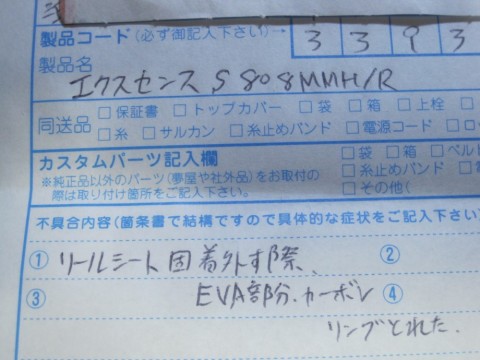 製品コード(必ず御記入下さい)→ 3 3 9 3
製品名
エクスセンス S808MMH/R
同送品 □保証書 □トップカバー □袋 □箱 □上栓 □
□糸 □サルカン □糸止めバンド □電源コード □ロ
カスタムパーツ記入欄 □袋 □箱 □ベルト
※純正品以外のパーツ(夢屋や社外品)をお取付の □糸止めバンド □
際は取り付け箇所をご記入下さい。 □その他(
不具合内容(箇条書で結構ですので具体的な症状をご記入下さい)
① リールシート固着外す際、 ②
③ EVA部分、カーボン ④
リングとれた。